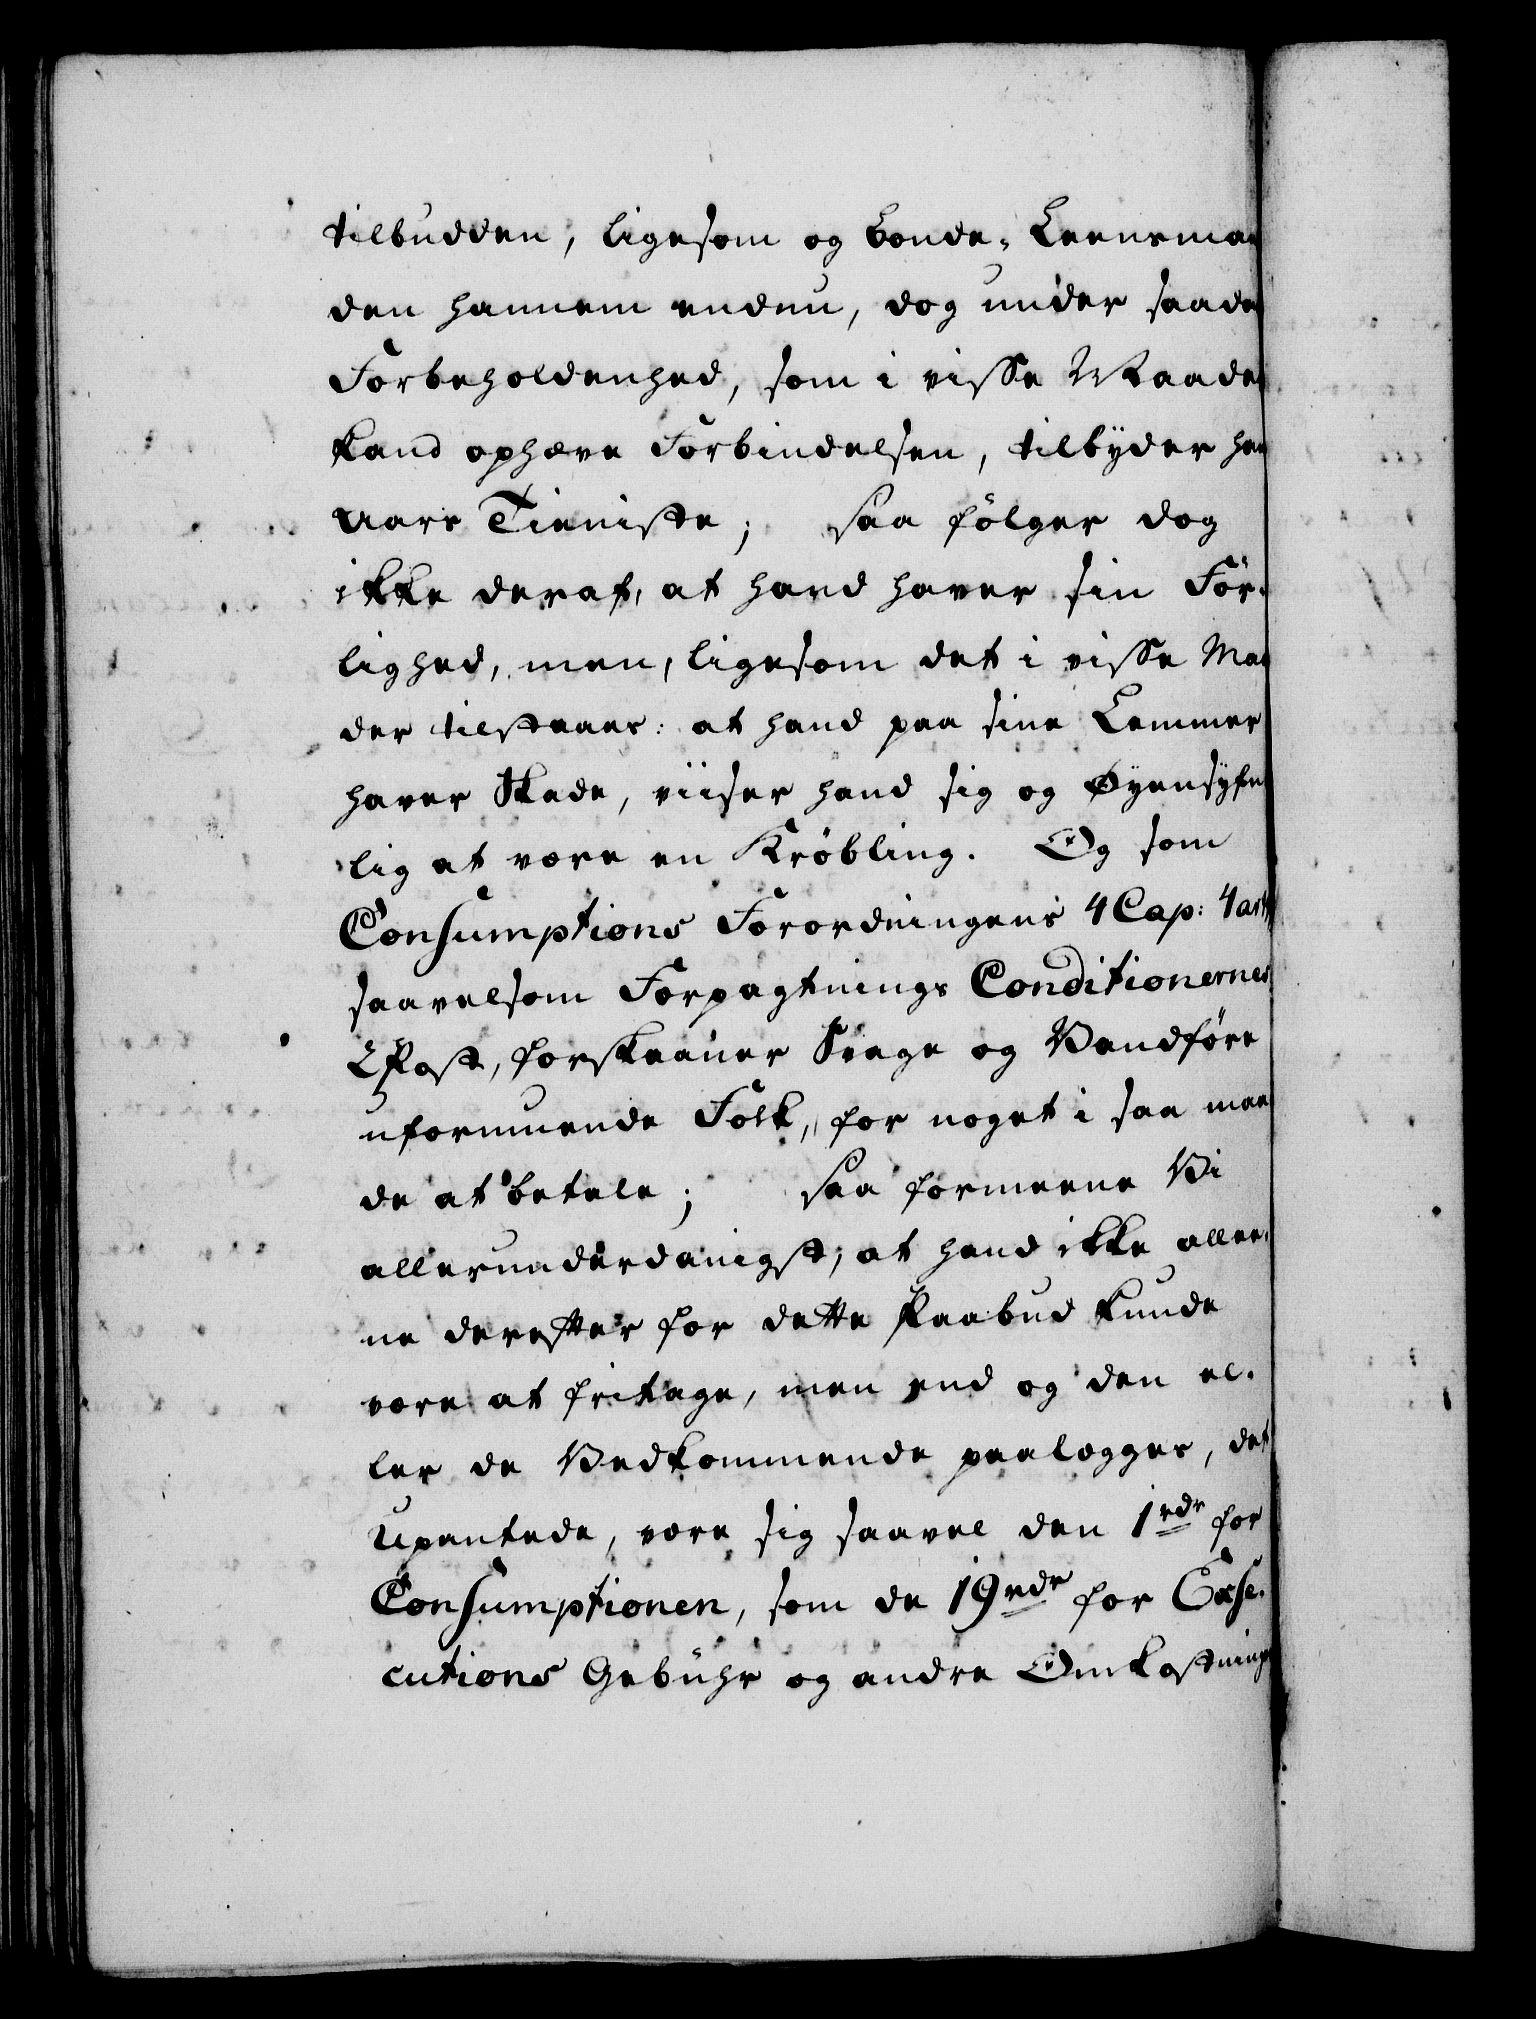 tilbudden, ligesom og Bonde-Leensma
den hannem endnu, dog under saada
Forbeholdenhed, som i visse Maade
kand ophæve Forbindelsen, tilbyder ha
Aars Tieniste; saa følger dog
ikke deraf, at hand haver sin Før-
lighed, men, ligesom det i visse Maa
der tilstaaes: at hand paa sine Lemmer
haver Skade, viiser hand sig og Øyensyn
lig at være en Krøbling. Og som
Consumptions Forordningens 4 Cap: 4 art
saavelsom Forpagtnings Conditionernes
2 Post, forskaaner Svage og Vandføre
uformuende Folk, for noget i saa maa
de at betale; saa formeene Vi
allerunderdanigst, at hand ikke allee-
ne derefter for dette Paabud kunde
være at fritage, men end og den el-
ler de Vedkommende paalægges, det
Upantede, være sig saavel den 1 rdr for
Consumptionen, som de 19 rdr for Exse-
cutions Gebühr og andre Omkostning